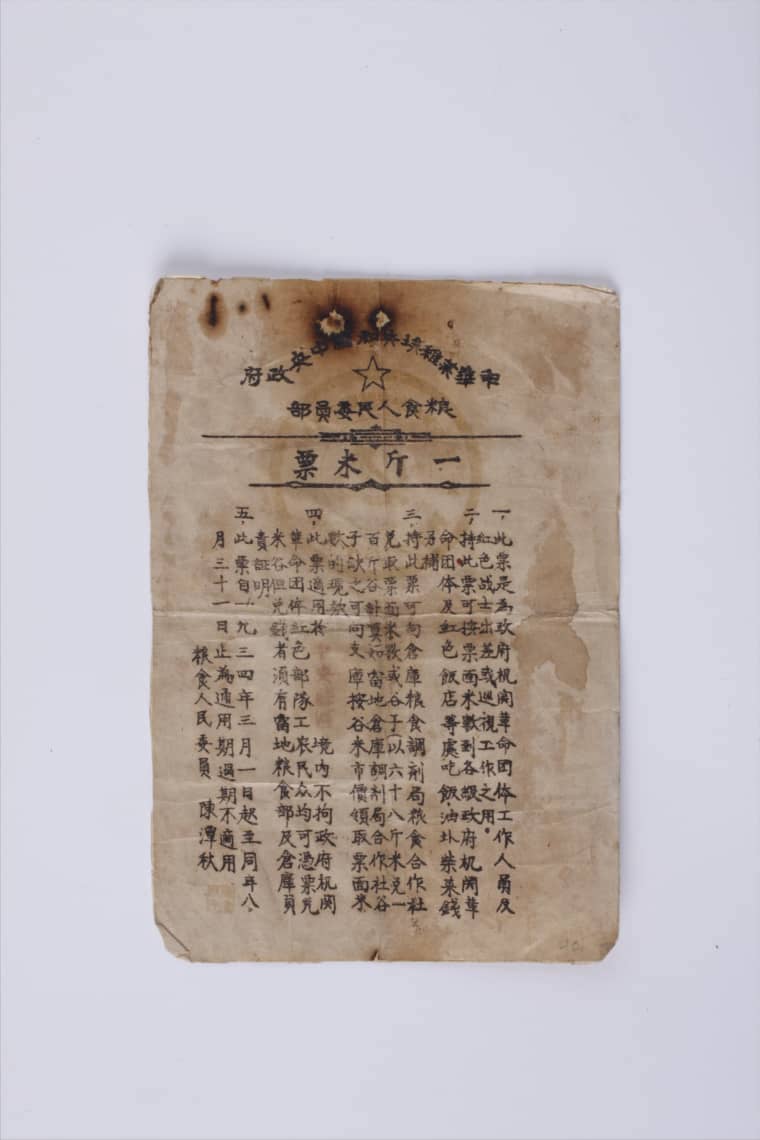 中華蘇維埃共和國中央政府
粮食人民委員部
一斤米票
一、此票是為政府机関革命团体工作人員及
红色战士出差或巡視工作之用。
二、持此票可按票面米数到各級政府机関革
命团体及红色飯店等處吃飯，油圤柴菜錢
另補
三、持此票可向倉庫粮食調剂局粮食合作社
兑取票面米数或谷子（以六十八斤米兑一
百斤谷計算如當地倉庫調剂局合作社谷
子缺乏可向支庫按谷米市價領取票面米
数的現款
四、此票適用於 境内不拘政府机関
革命团体红色部隊工农民众均可憑票兑
米谷但兑谷者須有當地粮食部及倉庫負
責証明
五、此票自一九三四年三月一日起至同年八
月三十一日止為通用期過期不適用
粮食人民委員 陳潭秋